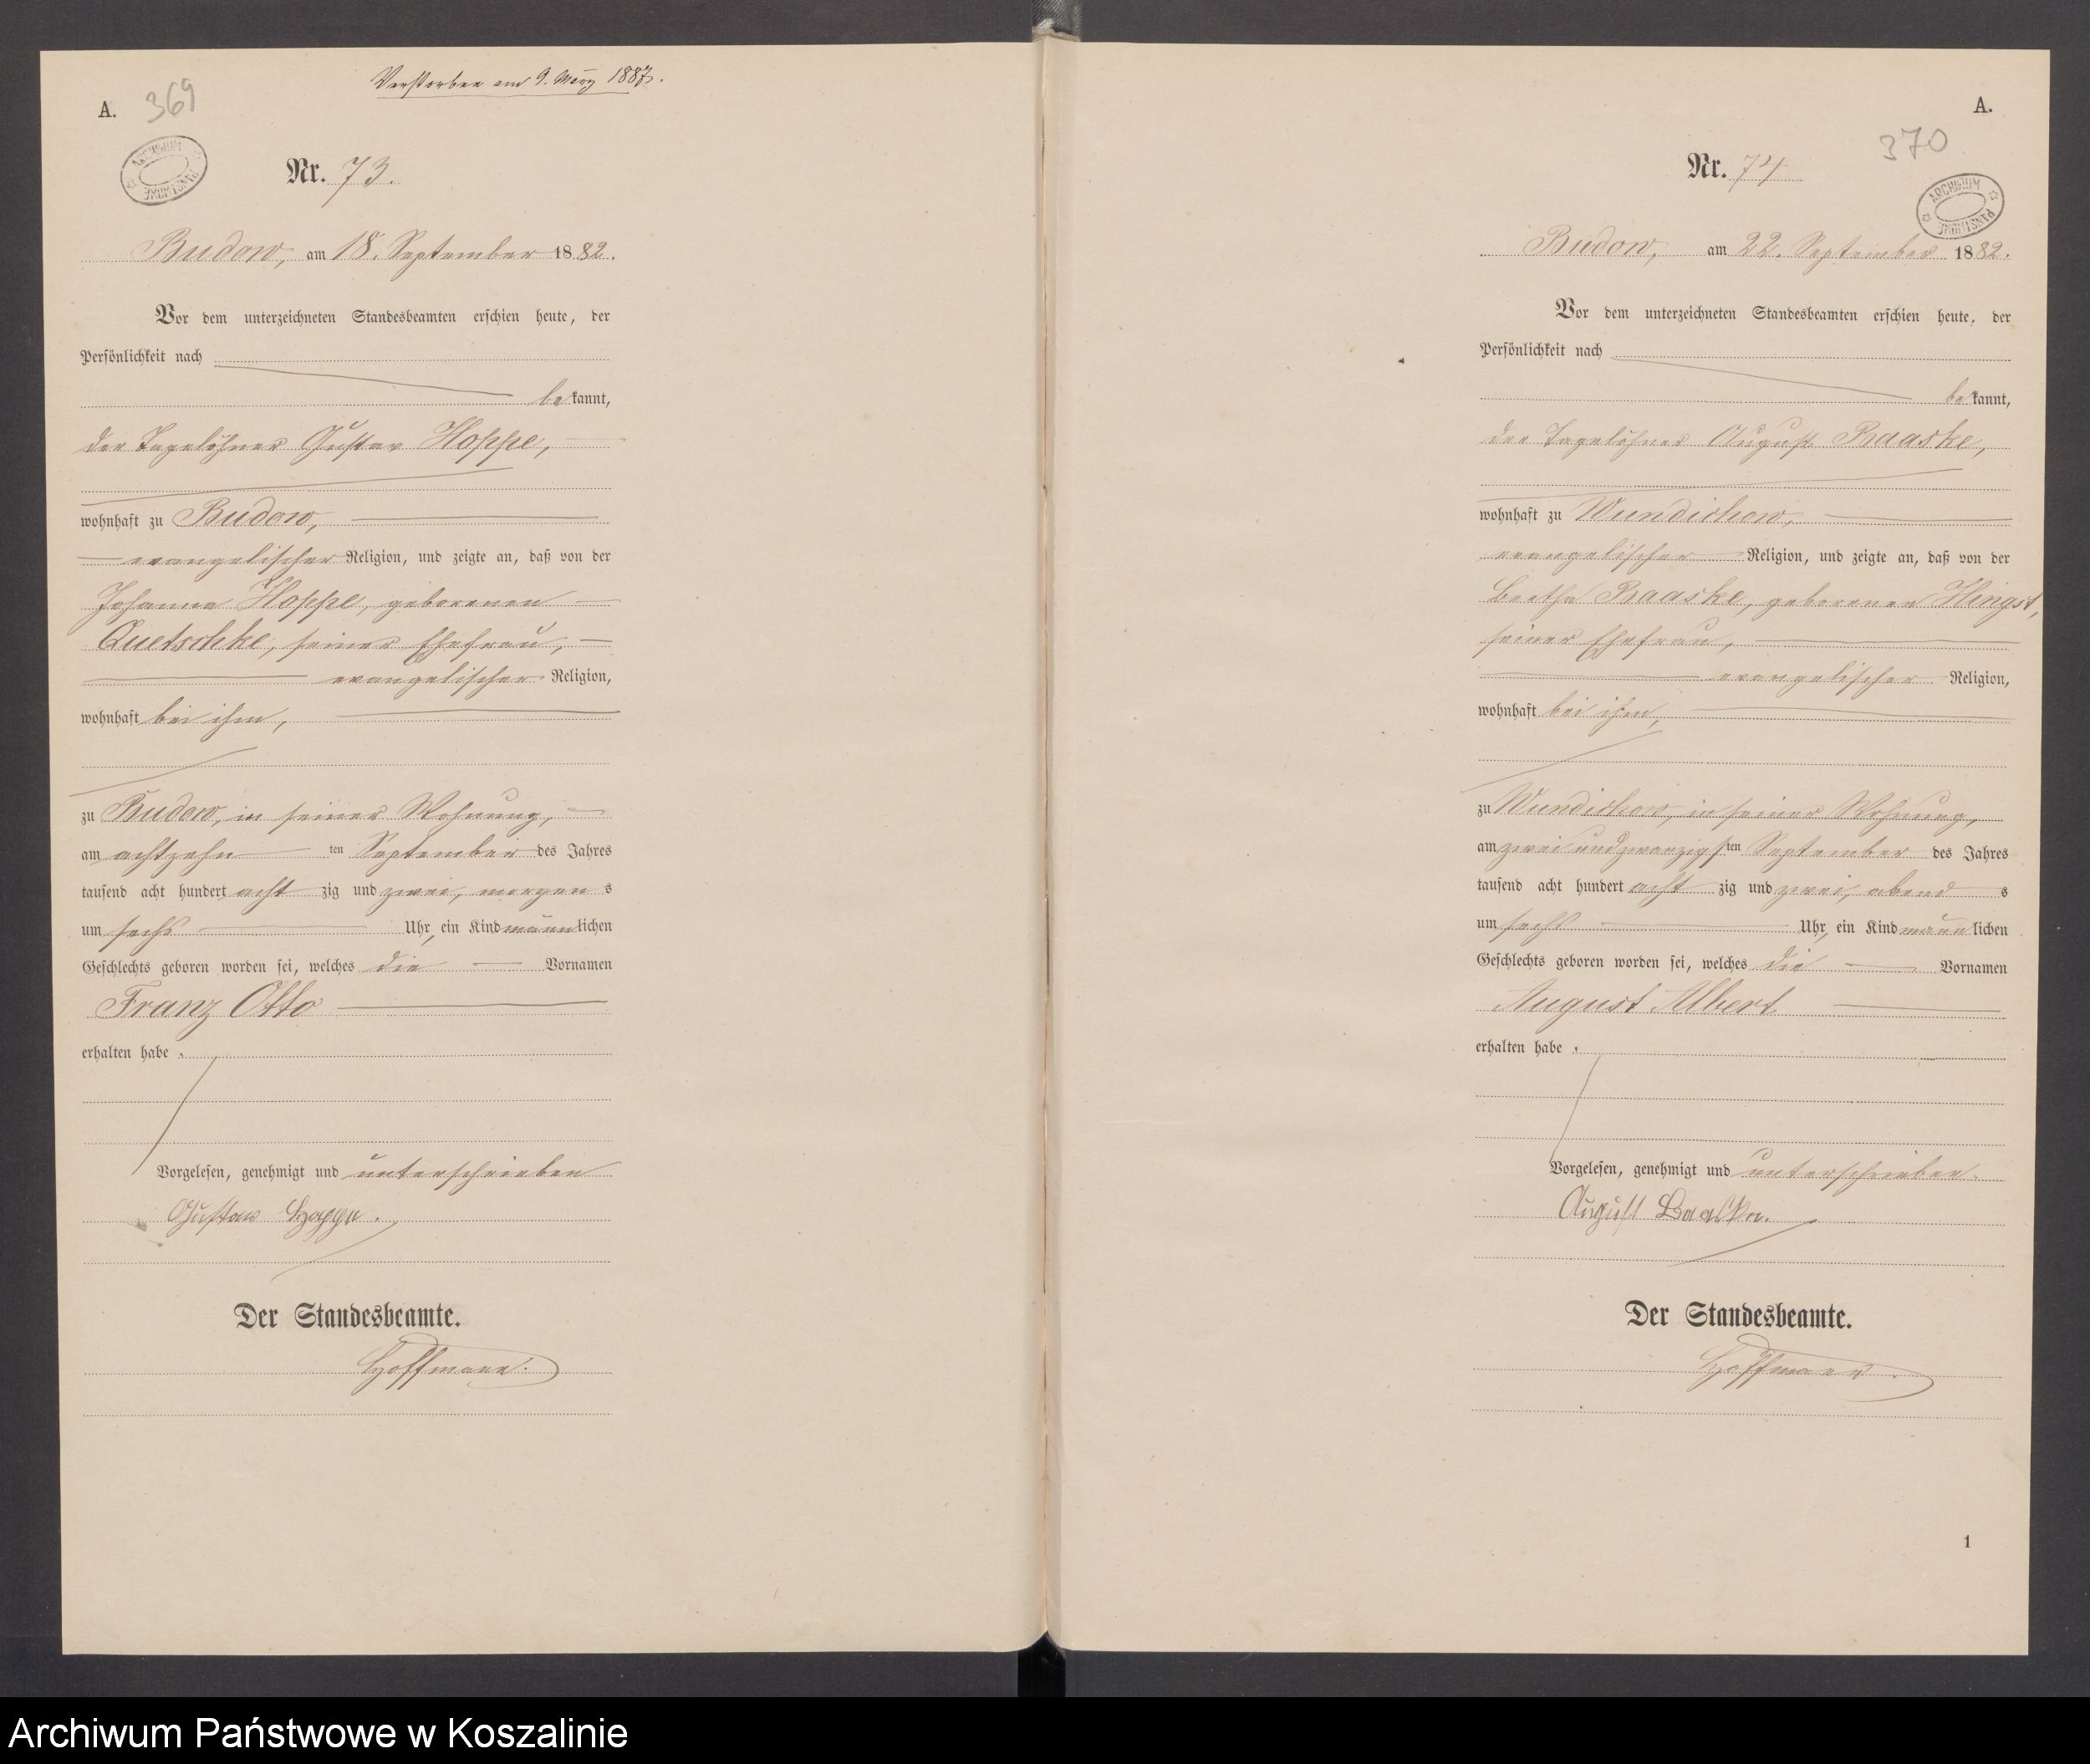 Verstorben am 9. März 1887.
A.
369
ARCHIWUM PAŃSTWOWE
Nr. 73.
Budow, am 18. September 1882.
Vor dem unterzeichneten Standesbeamten erschien heute, der
Persönlichkeit nach
bekannt,
der Tagelöhner Gustav Hoppe,
wohnhaft zu Budow,
evangelischer Religion, und zeigte an, daß von der
Johanna Hoppe, geborenen
Quetschke, seiner Ehefrau,
evangelischer Religion,
wohnhaft bei ihm,
zu Budow, in seiner Wohnung,
am achtzehn ten September des Jahres
tausend acht hundert acht zig und zwei, morgens
um sechs Uhr, ein Kind männlichen
Geschlechts geboren worden sei, welches die Vornamen
Franz Otto
erhalten habe.
Vorgelesen, genehmigt und unterschrieben
Gustav Hoppe.
Der Standesbeamte.
Hoffmann.
A.
370
ARCHIWUM PAŃSTWOWE
Nr. 74
Budow, am 22. September 1882.
Vor dem unterzeichneten Standesbeamten erschien heute, der
Persönlichkeit nach
bekannt,
der Tagelöhner August Raaske,
wohnhaft zu Wundichow,
evangelischer Religion, und zeigte an, daß von der
Bertha Raaske, geborenen Hingst,
seiner Ehefrau,
evangelischer Religion,
wohnhaft bei ihm,
zu Wundichow, in seiner Wohnung,
am zwei und zwanzigsten September des Jahres
tausend acht hundert acht zig und zwei, abends
um sechs Uhr, ein Kind männlichen
Geschlechts geboren worden sei, welches die Vornamen
August Albert
erhalten habe.
Vorgelesen, genehmigt und unterschrieben.
August Raaske.
Der Standesbeamte.
Hoffmann.
1
Archiwum Państwowe w Koszalinie